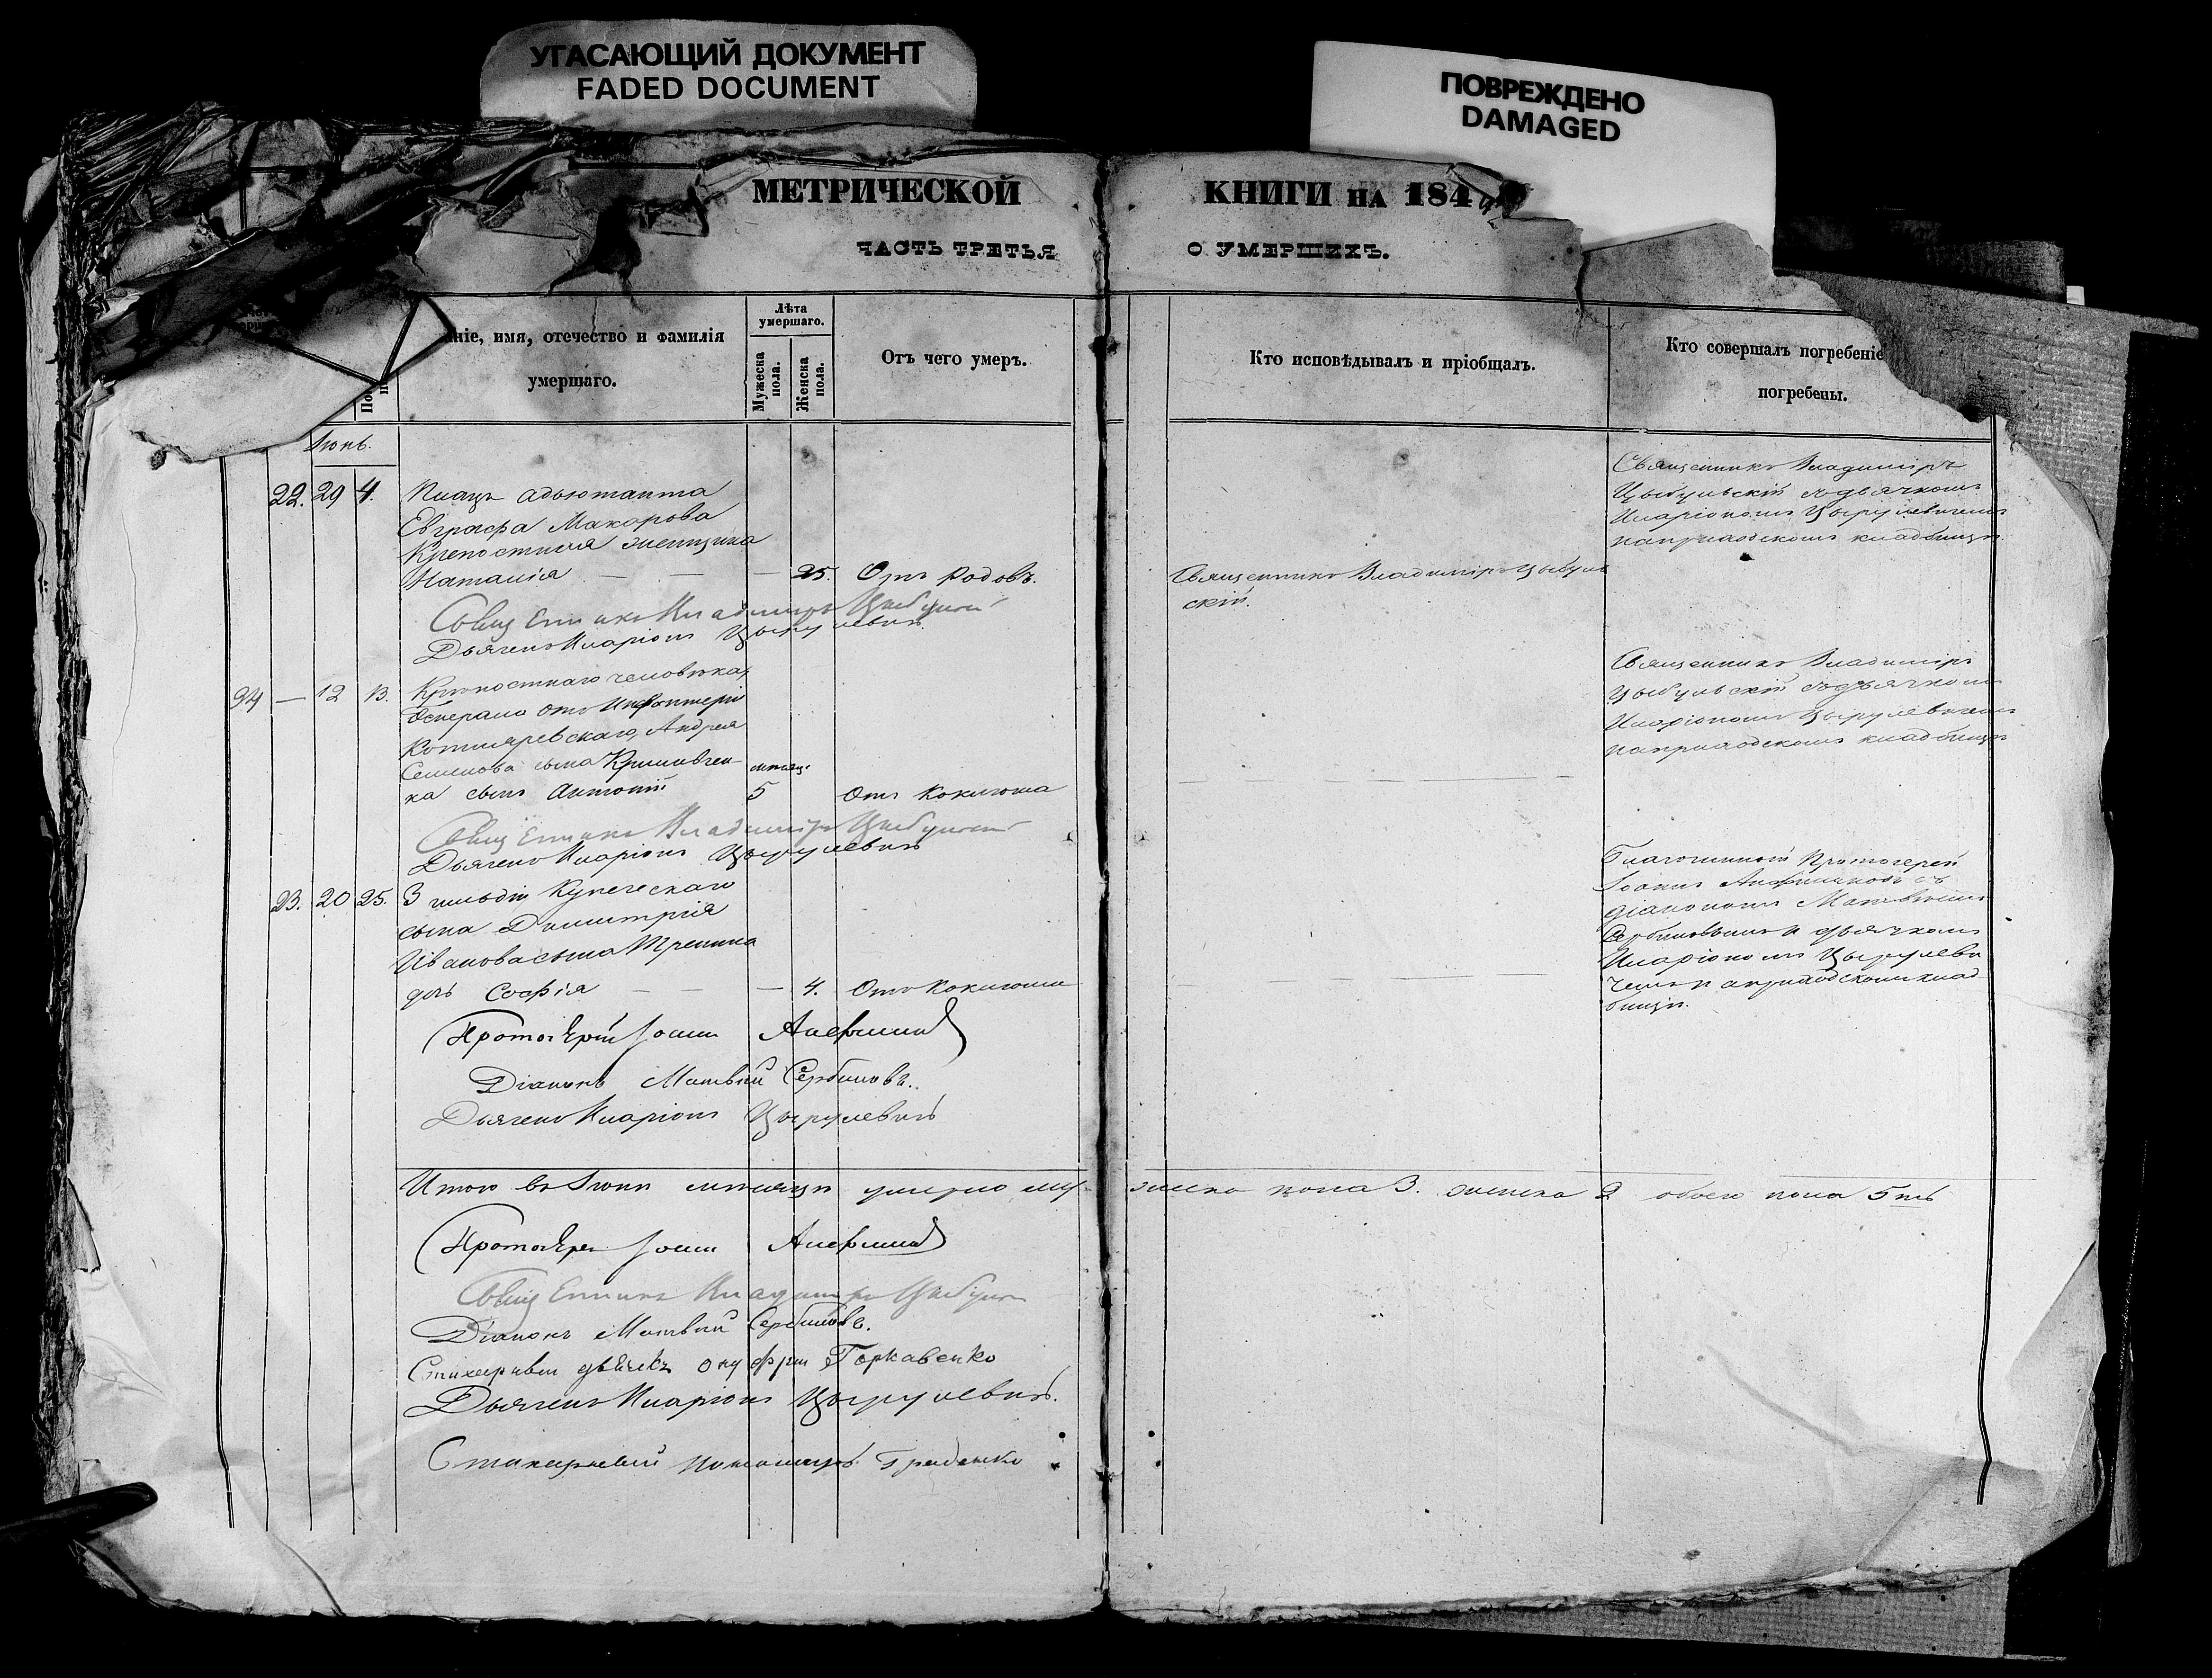 УГАСАЮЩИЙ ДОКУМЕНТ
FADED DOCUMENT
ПОВРЕЖДЕНО
DAMAGED
МЕТРИЧЕСКОЙ КНИГИ НА 184
ЧАСТЬ ТРЕТЬЯ О УМЕРШИХЪ.
ніе, имя, отечество и фамилія
умершаго.
Лѣта
умершаго.
Мужеска
пола.
Женска
пола.
Отъ чего умеръ.
Кто исповѣдывалъ и пріобщалъ.
Кто совершалъ погребеніе
погребены.
Іюнь.
22. 29 4. Плацъ адъютанта
Евграфа Макарова
Крепостная женщина
Наталія — — — 25. Отъ Родовъ.
Священникъ Владиміръ Цыбуль
скій.
Священникъ Владиміръ
Цыбульскій съ дьячкомъ
Иларіономъ Цырулевичемъ
на приходскомъ кладбищѣ.
Священникъ Владиміръ
Дьячекъ Иларіонъ Цырулевичъ
94 — 12 13. Крѣпостнаго человѣка,
Генерала отъ Инфантеріи
Котляревскаго, Андрея
Семенова сына
ка сынъ Антоній 5 Отъ Коклюша
Священникъ Владиміръ
Цыбульскій съ дьячкомъ
Иларіономъ Цырулевичемъ
на приходскомъ кладбищѣ
Священникъ Владиміръ
Дьячекъ Иларіонъ Цырулевичъ
23. 20 25. 3 гильдіи Купеческаго
сына Димитрія
Иванова сына
дочь Софія — — — 4. Отъ Коклюша
Благочинный Протоіерей
Іоаннъ съ
діакономъ Матвѣемъ
Сербиновымъ и дьячкомъ
Иларіономъ Цырулеви
чемъ на приходскомъ клад
бищѣ.
Протоіерей Іоаннъ
Діаконъ Матвѣй Сербиновъ.
Дьячекъ Иларіонъ Цырулевичъ
Итого въ Іюнѣ мѣсяцѣ умерло му- жеска пола 3. женска 2 обоего пола 5ть
Протоіерей Іоаннъ
Священникъ Владиміръ
Діаконъ Матвѣй Сербиновъ.
Стихарный дьячекъ Онуфрій Горкавенко
Дьячекъ Иларіонъ Цырулевичъ.
Стихарный Пономарь